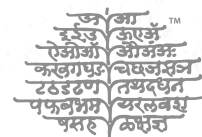 अ आ TM
इ ई उ ऊ ए अॅ
ऐ ओ औ ओ अं अः
क ख ग घ ङ च छ ज झ ञ
ट ठ ड ढ ण त थ द ध न
प फ ब भ म य र ल व श
ष स ह ळ क्ष ज्ञ